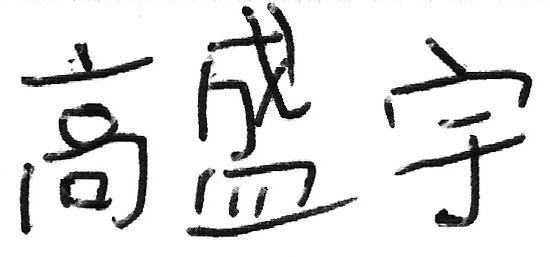 高盛宇